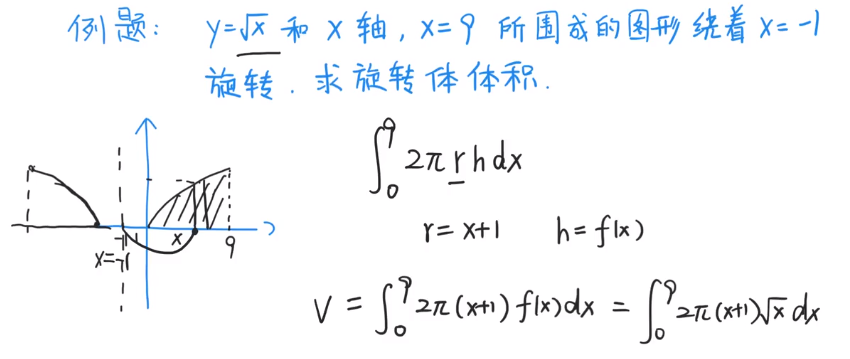 例题: y=√x 和 x 轴, x=9 所围成的图形绕着 x=-1
旋转. 求旋转体体积.
∫₀⁹ 2π r h dx
r= x+1 h= f(x)
x
9
x=-1
V = ∫₀⁹ 2π (x+1) f(x) dx = ∫₀⁹ 2π (x+1) √x dx